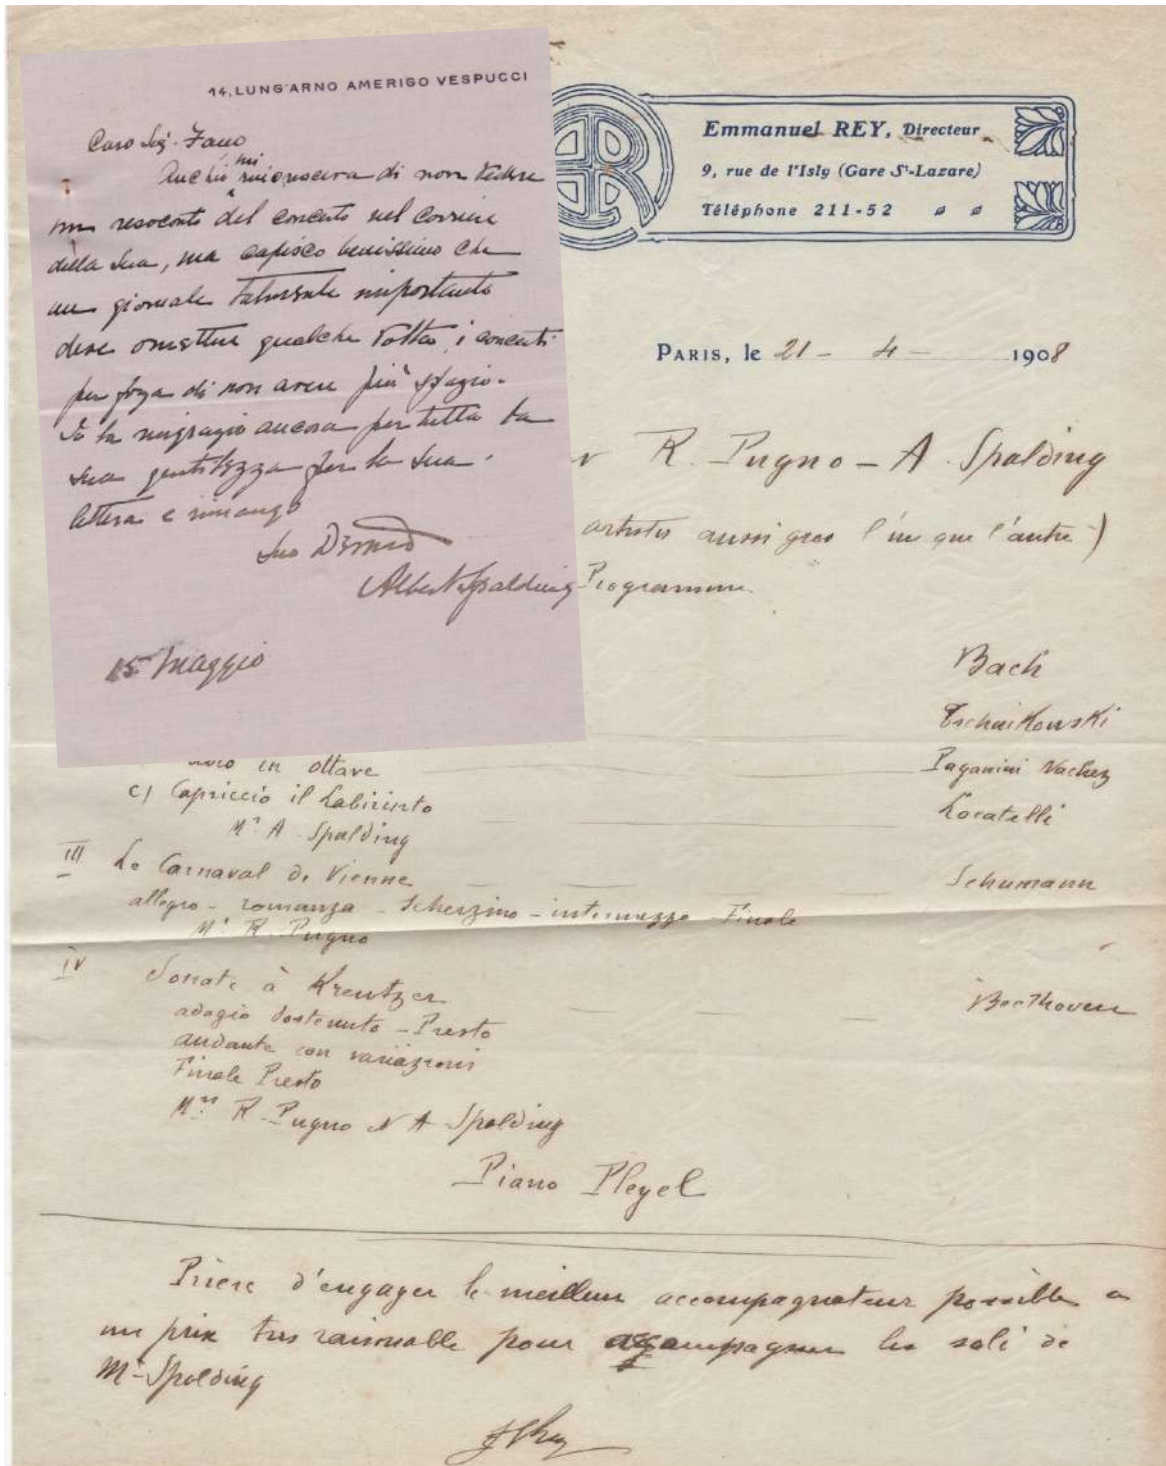 14, LUNG'ARNO AMERIGO VESPUCCI
Caro Sig. Fano
Anch'io mi rincresceva di non vedere
un resoconto del concerto nel Corriere
della Sera, ma capisco benissimo che
un giornale talmente importante
deve omettere qualche volta i concerti
per forza di non avere più spazio.
Io La ringrazio ancora per tutta la
sua gentilezza per la sua
lettera e rimango
Suo
Albert Spalding
15 Maggio
Emmanuel REY, Directeur
9, rue de l'Isly (Gare St-Lazare)
Téléphone 211-52
PARIS, le 21 - 4 - 1908
R. Pugno - A. Spalding
artistes aussi gros l'un que l'autre)
Programme
Bach
Tschaikowski
in ottave Paganini Vachez
c) Capriccio il Labirinto Locatelli
Mr A. Spalding
III Le Carnaval de Vienne Schumann
allegro - romanza - Scherzino - intermezzo - Finale
Mr R. Pugno
IV Sonate à Kreutzer Beethoven
adagio sostenuto - Presto
andante con variazioni
Finale Presto
Mrs R. Pugno et A. Spalding
Piano Pleyel
Prière d'engager le meilleur accompagnateur possible a
un prix tres raisonnable pour accompagner les soli de
Mr Spalding